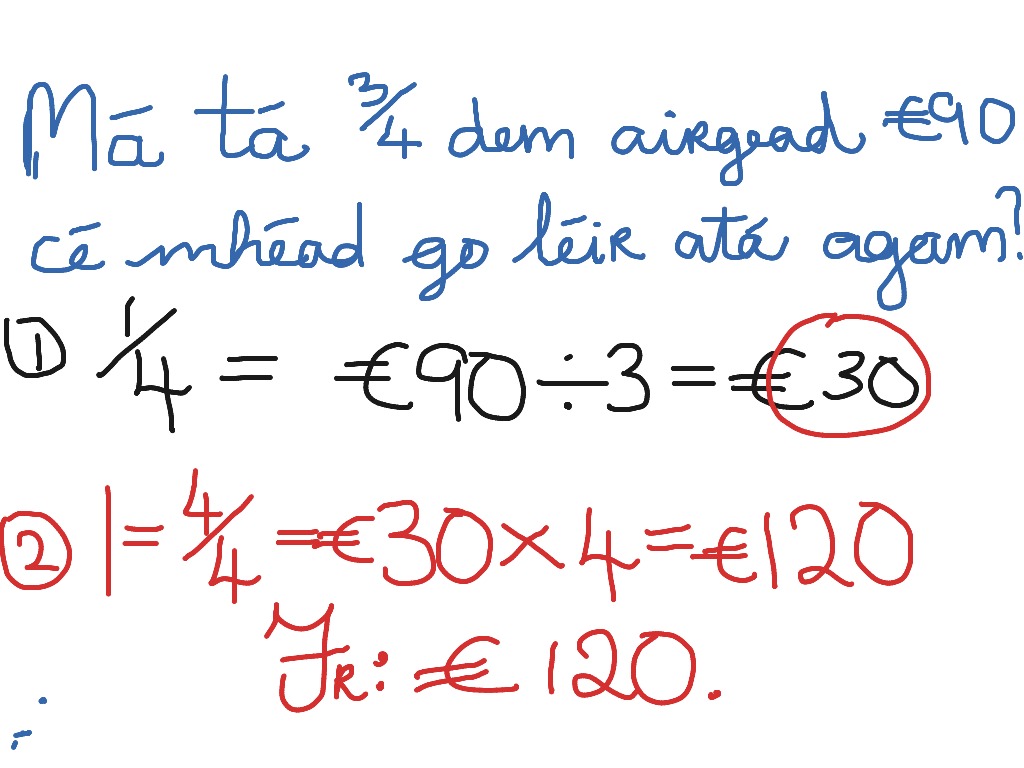 Má tá 3/4 dem airgead €90
cé mhéad go léir atá agam?
① 1/4 = €90 ÷ 3 = €30
② 1 = 4/4 = €30 × 4 = €120
Fr: €120.